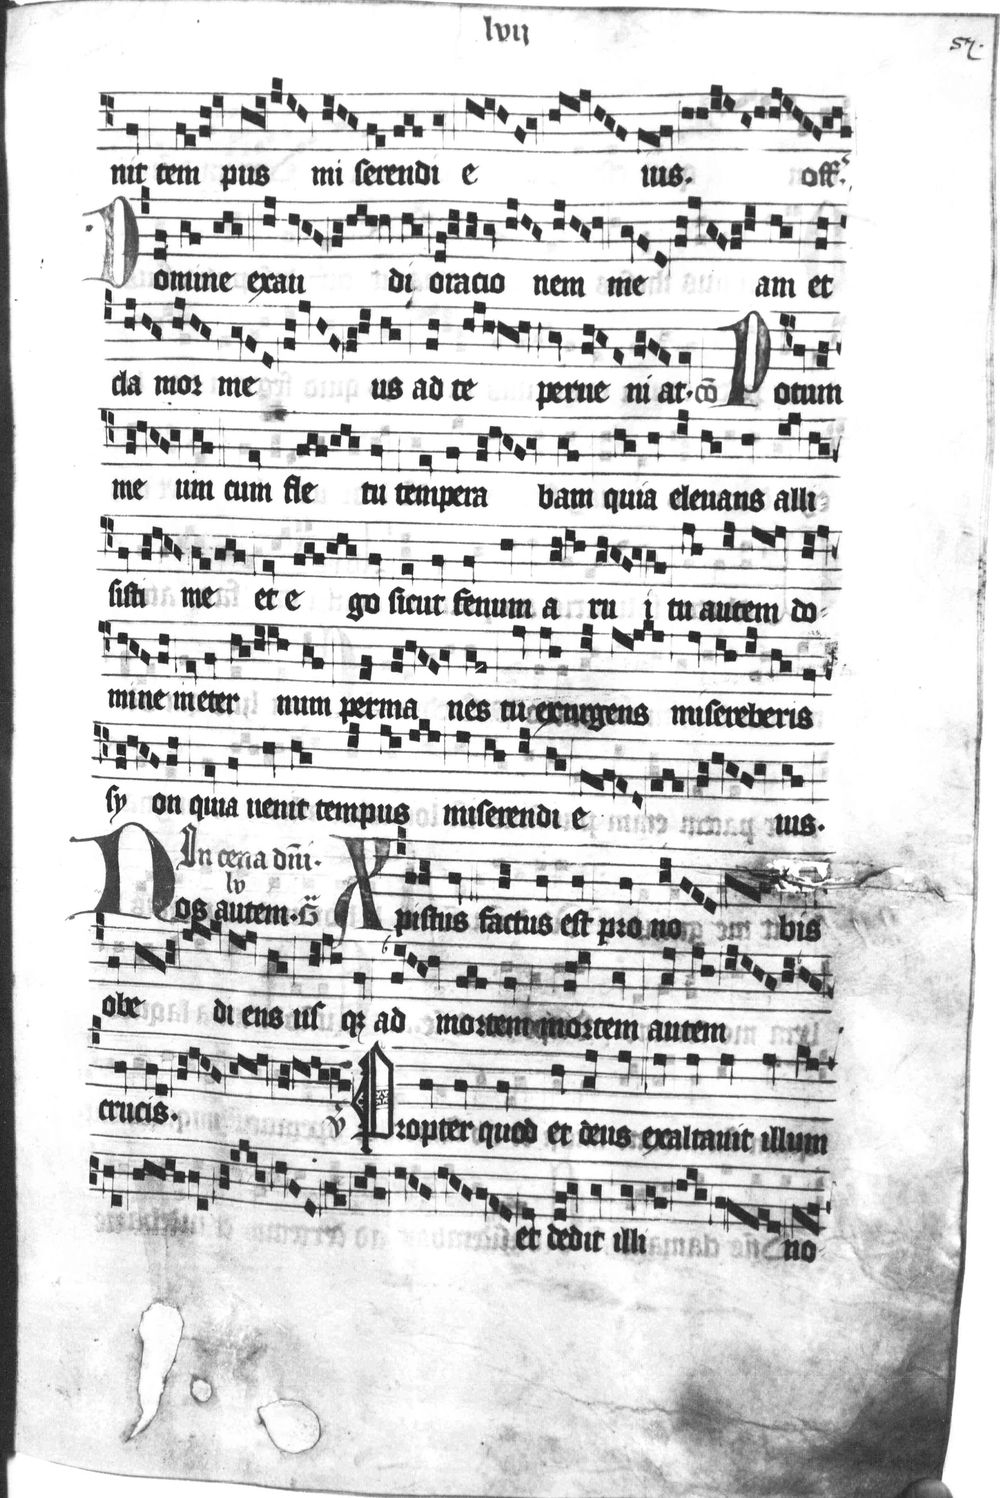 lvij
57.
nit tem pus mi serendi e ius. off.
Domine exau di oracio nem me am et
cla mor me us ad te perue ni at. cō Potum
me um cum fle tu tempera bam quia eleuans alli
sisti me et e go sicut fenum a ru i tu autem do
mine in eter num perma nes tu exurgens misereberis
sy on quia uenit tempus miserendi e ius.
In cena dn̄i.
lv
Nos autem. Gr̄ Xpistus factus est pro no bis
obe di ens us qꝫ ad mortem mortem autem
crucis. v̄ Propter quod et deus exaltauit illum
et dedit illi no